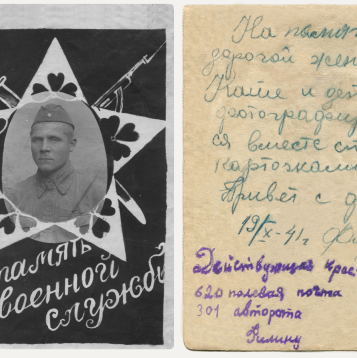 память
военной
службы
На памят
дорогой жен
Кате и дет
фотографиру
ся вместе с
карточками
Привет с
19 5/X-41 г.
Действующая Крас
620 полевая почта
301 авторота
Килину